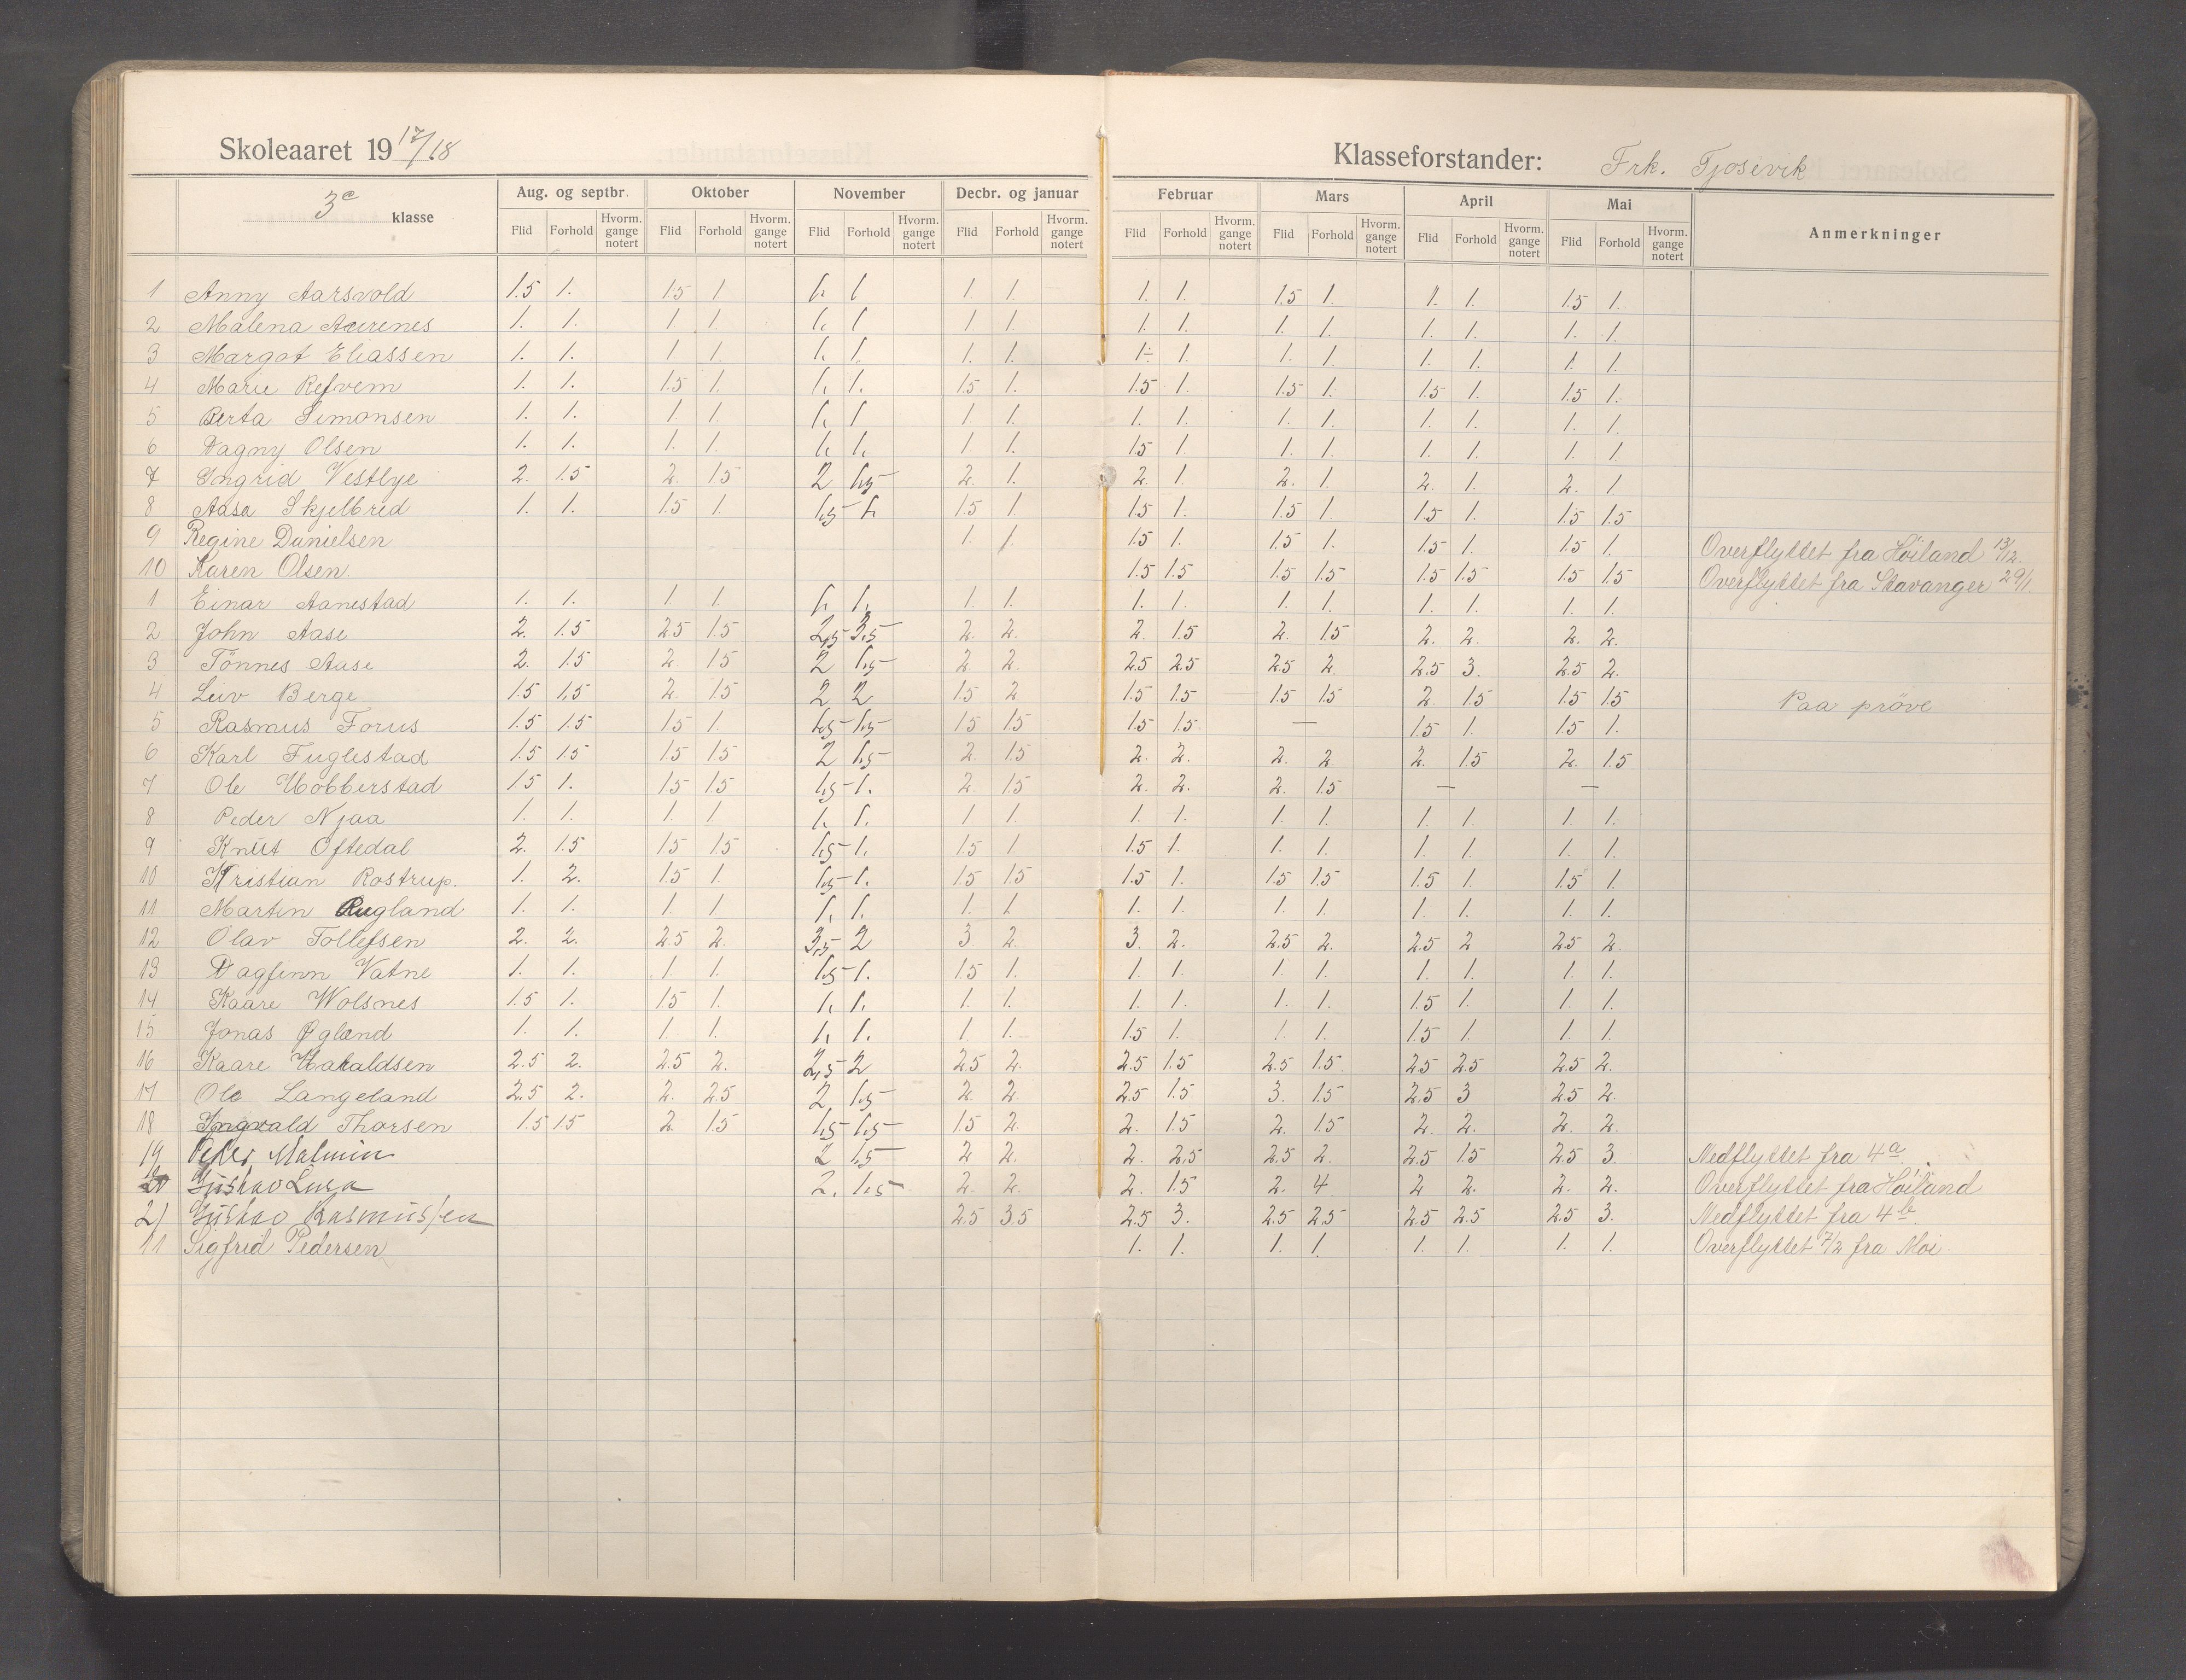 Skoleaaret 19 17/18
Klasseforstander: Frk. Tjosevik
3c klasse | Aug. og septbr. | Oktober | November | Decbr. og januar | Februar | Mars | April | Mai | Anmerkninger
Flid Forhold Hvorm. gange notert | Flid Forhold Hvorm. gange notert | Flid Forhold Hvorm. gange notert | Flid Forhold Hvorm. gange notert | Flid Forhold Hvorm. gange notert | Flid Forhold Hvorm. gange notert | Flid Forhold Hvorm. gange notert | Flid Forhold Hvorm. gange notert
1 Anny Aarsvold 1.5 1. 1.5 1 1. 1 1. 1. 1. 1. 1.5 1. 1. 1. 1.5 1.
2 Malena Aurenes 1. 1. 1 1. 1. 1 1. 1. 1. 1. 1. 1. 1. 1. 1. 1.
3 Margot Eliassen 1. 1. 1 1. 1. 1. 1. 1. 1- 1. 1. 1. 1. 1. 1. 1.
4 Marie Refvem 1. 1. 1.5 1. 1. 1. 1.5 1. 1.5 1. 1.5 1. 1.5 1. 1.5 1.
5 Berta Simonsen 1. 1. 1. 1. 1. 1 1. 1. 1. 1. 1. 1. 1. 1. 1. 1.
6 Dagny Olsen 1. 1. 1. 1. 1. 1. 1. 1. 1.5 1. 1. 1. 1. 1. 1. 1.
7 Ingrid Vestbye 2. 1.5 2. 1.5 2 1.5 2. 1. 2. 1. 2. 1. 2. 1. 2. 1
8 Aasa Skjelbred 1. 1. 1.5 1. 1.5 1. 1.5 1 1.5 1. 1.5 1. 1.5 1. 1.5 1.5
9 Regine Danielsen 1. 1. 1.5 1. 1.5 1. 1.5 1. 1.5 1. Overflyttet fra Höiland 13/12.
10 Karen Olsen 1.5 1.5 1.5 1.5 1.5 1.5 1.5 1.5 Overflyttet fra Stavanger 29/1.
1 Einar Aanestad 1. 1. 1 1. 1. 1. 1. 1. 1. 1. 1. 1. 1. 1. 1. 1.
2 John Aase 2. 1.5 2.5 1.5 2,5 3,5 2. 2. 2. 1.5 2. 1.5 2. 2. 2. 2.
3 Tönnes Aase 2. 1.5 2. 1.5 2 1.5 2. 2. 2.5 2.5 2.5 2. 2.5 3. 2.5 2.
4 Leiv Berge 1.5 1,5 2. 1.5 2 2 1.5 2 1.5 1.5 1.5 1.5 2. 1.5 1.5 1.5 Paa pröve
5 Rasmus Forus 1.5 1.5 1.5 1. 1.5 1.5 1.5 1.5 1.5 1.5 — 1.5 1. 1.5 1.
6 Karl Fuglestad 1.5 1.5 1.5 1.5 2 1.5 2. 1.5 2. 2. 2. 2. 2. 1.5 2. 1.5
7 Ole Hobberstad 1.5 1. 1.5 1.5 1.5 1. 2. 1.5 2. 2. 2. 1.5 — —
8 Peder Njaa 1. 1. 1. 1 1. 1. 1 1. 1. 1. 1. 1. 1. 1. 1. 1.
9 Knut Oftedal 2. 1.5 1.5 1.5 1.5 1. 1.5 1 1.5 1. 1. 1. 1. 1. 1. 1.
10 Kristian Rostrup. 1. 2. 1.5 1. 1.5 1. 1.5 1.5 1.5 1. 1.5 1.5 1.5 1. 1.5 1.
11 Martin Rugland 1. 1. 1. 1 1. 1. 1. 1 1. 1. 1. 1. 1. 1. 1. 1.
12 Olav Tollefsen 2. 2. 2.5 2. 3,5 2 3 2. 3. 2. 2.5 2. 2.5 2 2.5 2.
13 Dagfinn Vatne 1. 1. 1. 1. 1.5 1. 1.5 1. 1. 1. 1. 1. 1. 1. 1. 1.
14 Kaare Wolsnes 1.5 1. 1.5 1. 1. 1. 1. 1. 1. 1. 1. 1. 1.5 1. 1. 1.
15 Jonas Øgland 1. 1. 1. 1. 1. 1. 1. 1. 1.5 1. 1. 1. 1.5 1. 1. 1.
16 Kaare Haraldsen 2.5 2. 2.5 2. 2,5 2 2.5 2. 2.5 1.5 2.5 1.5 2.5 2.5 2.5 2.
17 Ole Langeland 2.5 2. 2. 2.5 2 1.5 2. 2. 2.5 1.5 3. 1.5 2.5 3 2.5 2.
18 Ingvald Thorsen 1.5 1.5 2. 1.5 1.5 1.5 1.5 2. 2. 1.5 2. 1.5 2. 2. 2. 2.
19 Peder Malmin 2 1.5 2 2. 2. 2.5 2.5 2. 2.5 1.5 2.5 3. Nedflyttet fra 4a.
20 Gustav Lura 2. 1.5 2. 2. 2. 1.5 2. 4 2 2. 2. 2. Overflyttet fra Höiland
21 Gustav Rasmussen 2.5 3.5 2.5 3. 2.5 2.5 2.5 2.5 2.5 3. Nedflyttet fra 4b.
11 Sigfrid Pedersen 1. 1. 1. 1. 1. 1. 1. 1. Overflyttet 7/2 fra Moi.